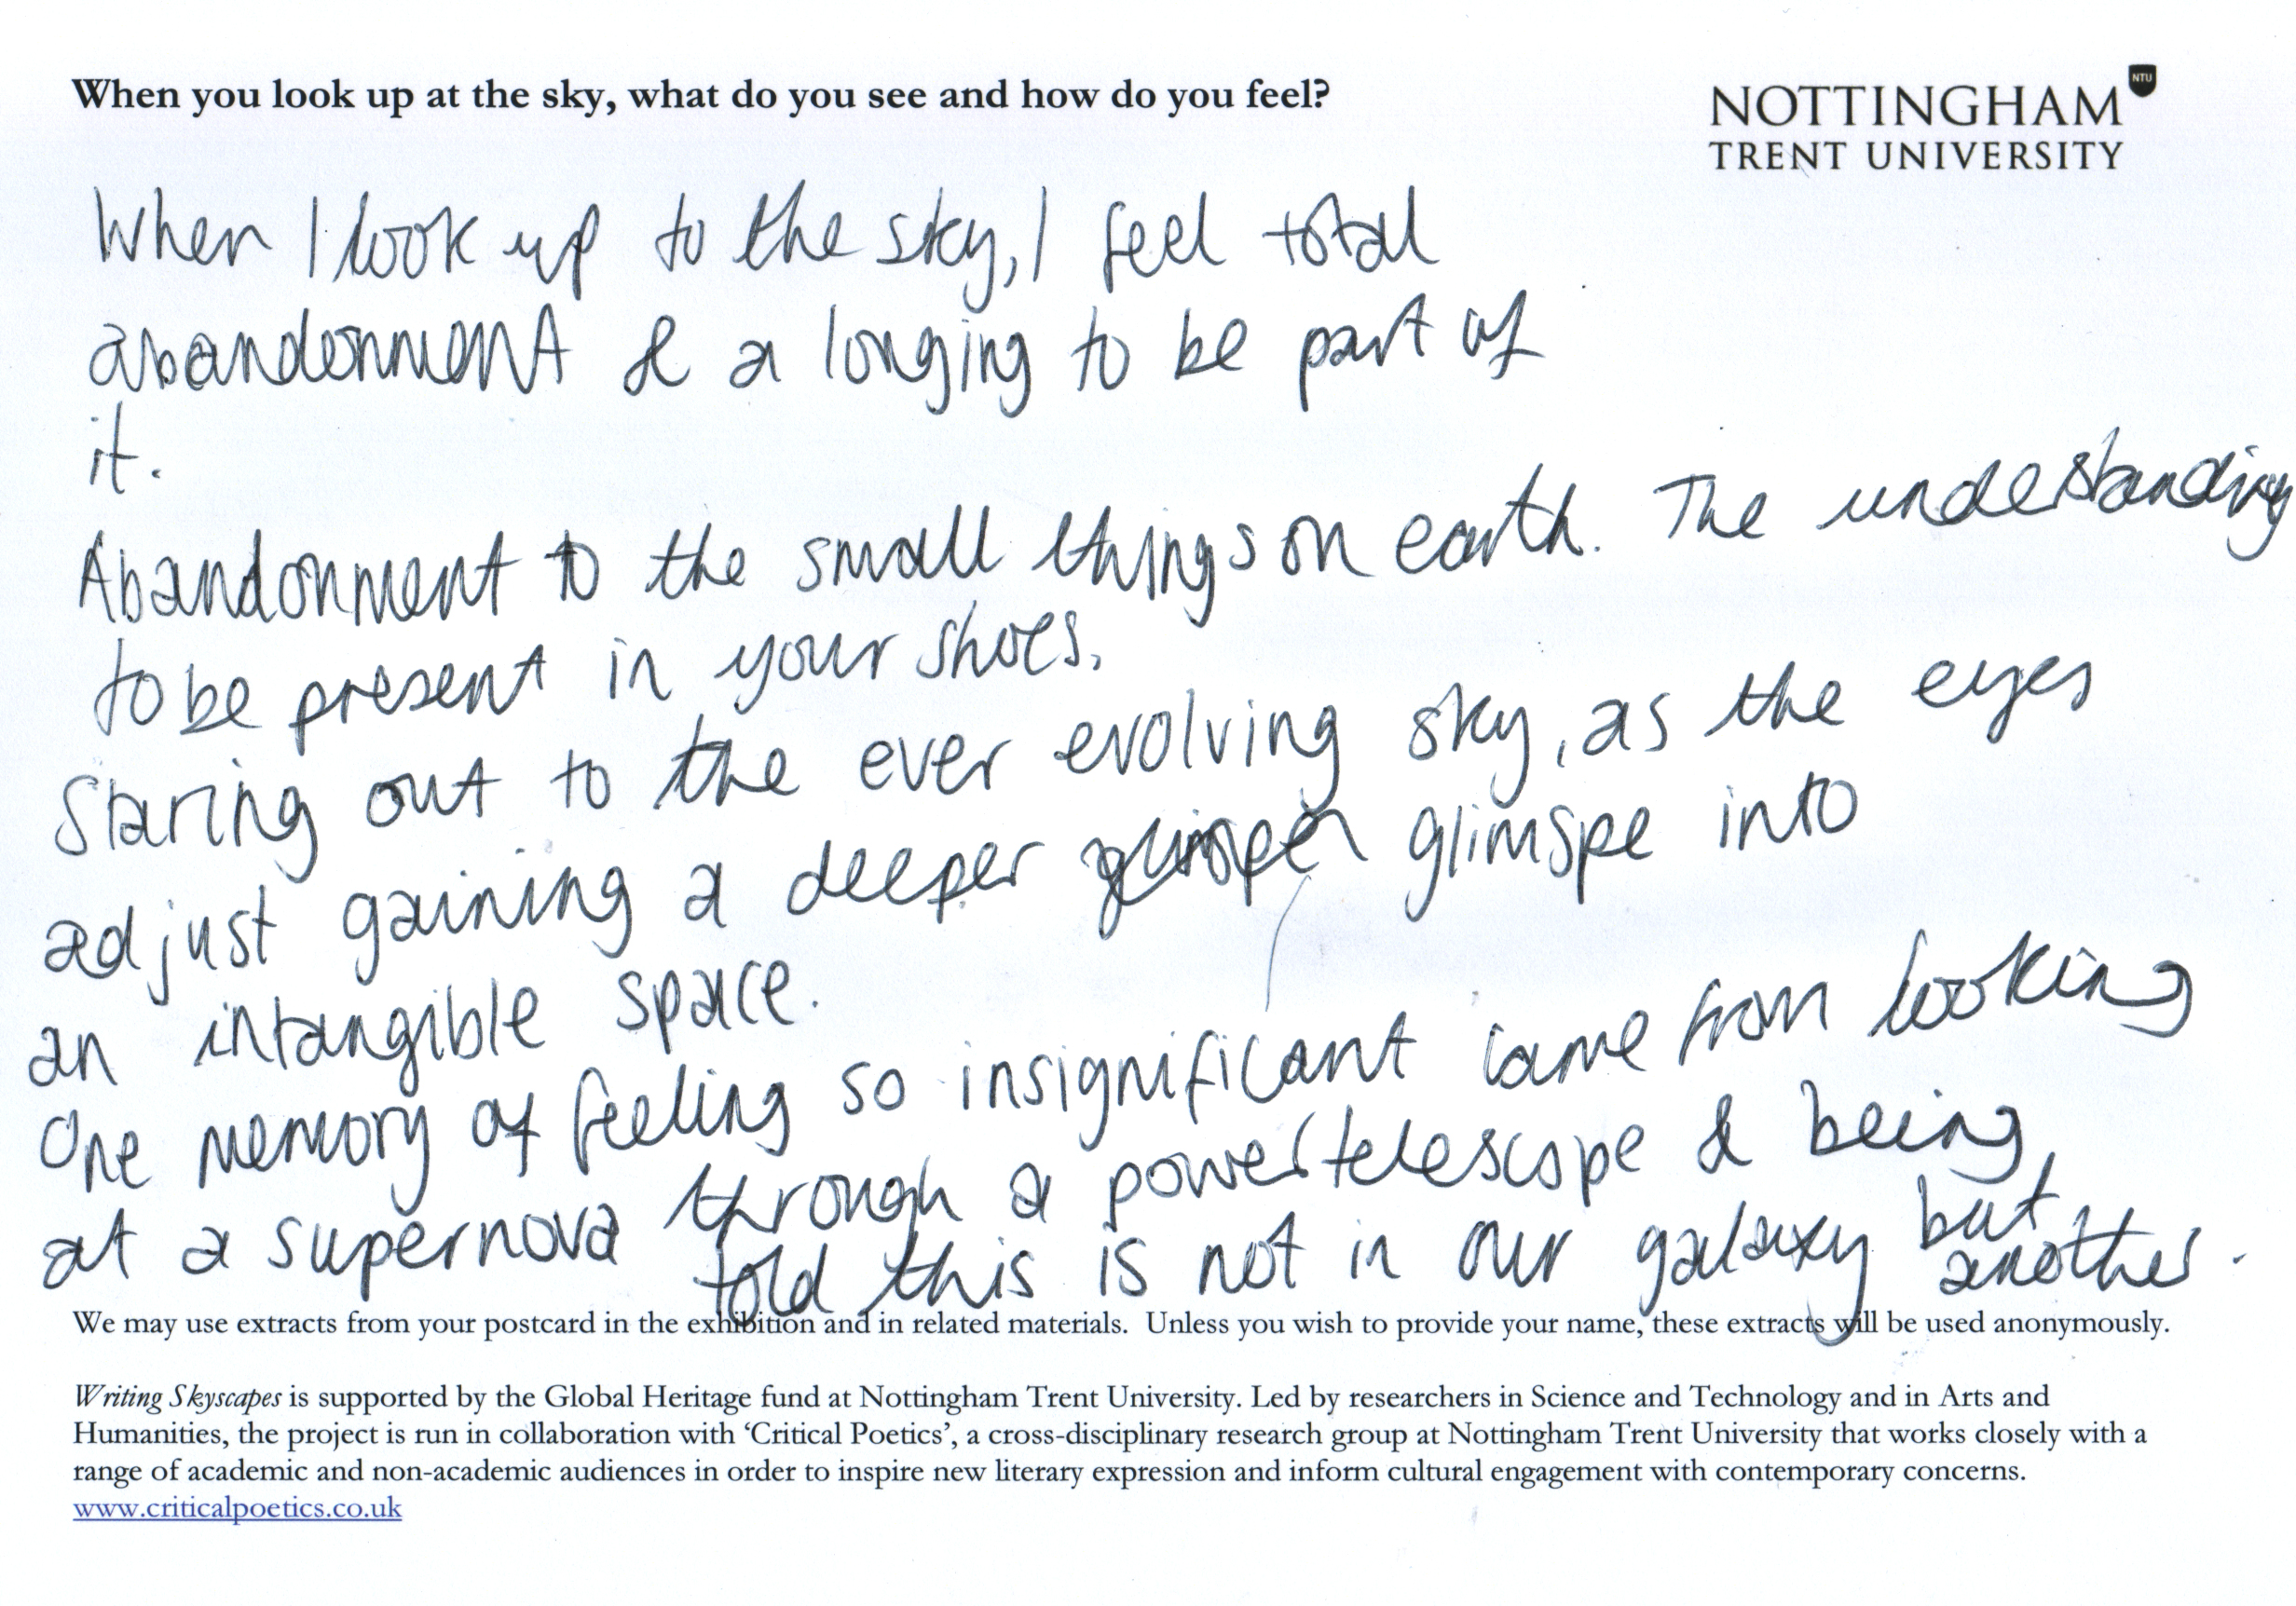 When you look up at the sky, what do you see and how do you feel?
NTU
NOTTINGHAM
TRENT UNIVERSITY
When I look up to the sky, I feel total
abandonment & a longing to be part of
it.
Abandonment to the small things on earth. The understanding
to be present in your shoes.
Staring out to the ever evolving sky, as the eyes
adjust gaining a deeper glimspe into
an intangible space.
One memory of feeling so insignificant came from looking
at a supernova through a power telescope & being
told this is not in our galaxy but
another.
We may use extracts from your postcard in the exhibition and in related materials. Unless you wish to provide your name, these extracts will be used anonymously.
Writing Skyscapes is supported by the Global Heritage fund at Nottingham Trent University. Led by researchers in Science and Technology and in Arts and
Humanities, the project is run in collaboration with ‘Critical Poetics’, a cross-disciplinary research group at Nottingham Trent University that works closely with a
range of academic and non-academic audiences in order to inspire new literary expression and inform cultural engagement with contemporary concerns.
www.criticalpoetics.co.uk